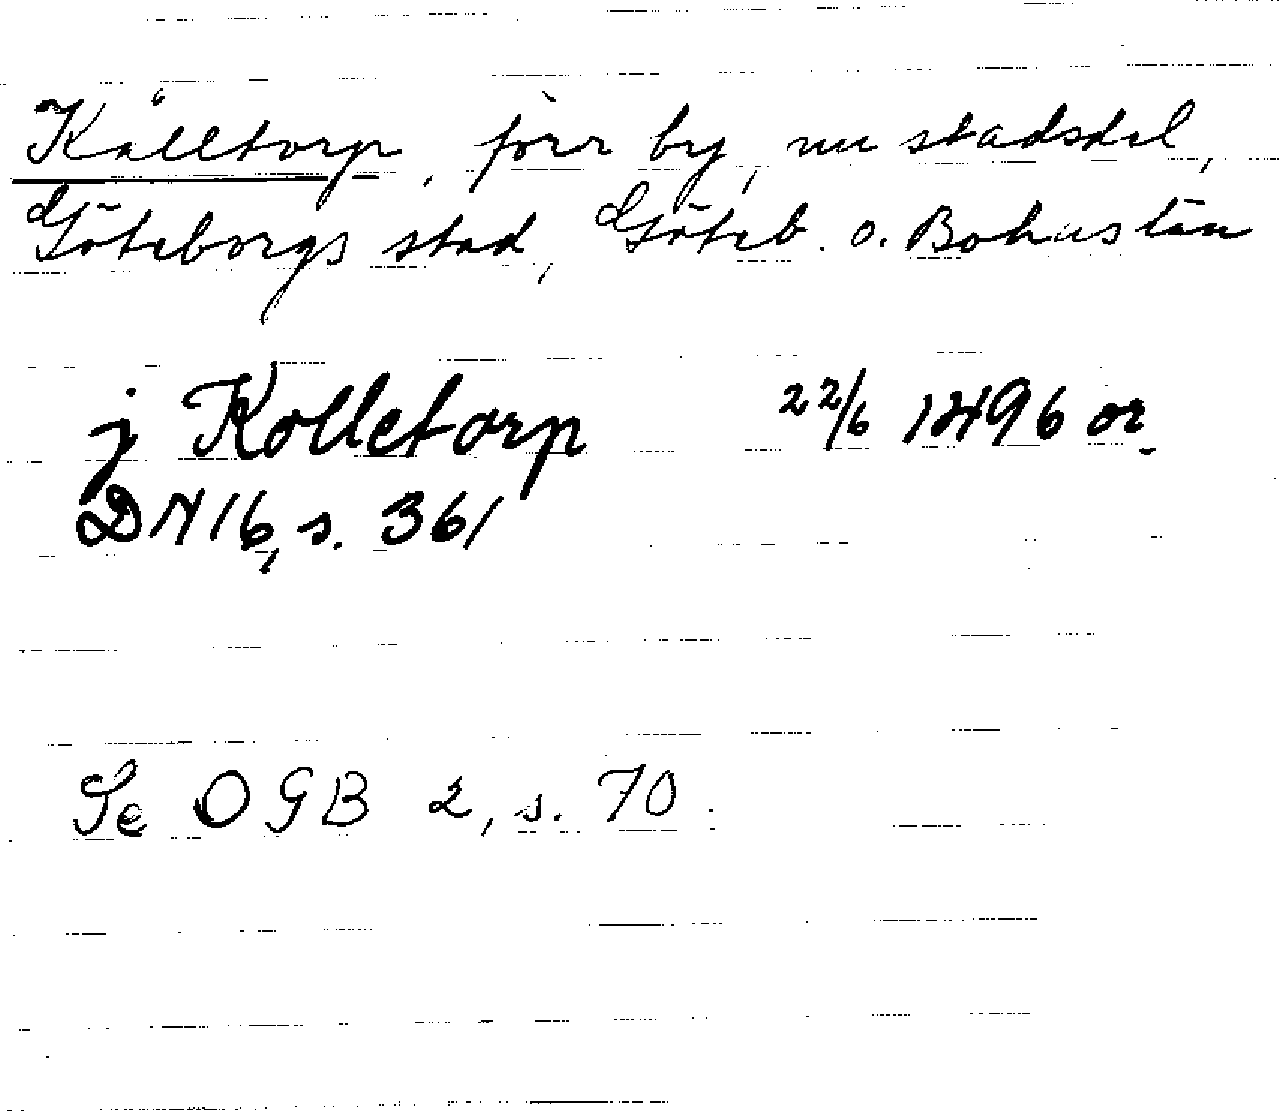 Kålltorp, förr by, nu stadsdel,
Göteborgs stad, Göteb. o. Bohus län
j Kolletorp 22/6 1496 or.
DN 16, s. 361
Se OGB 2, s. 70.